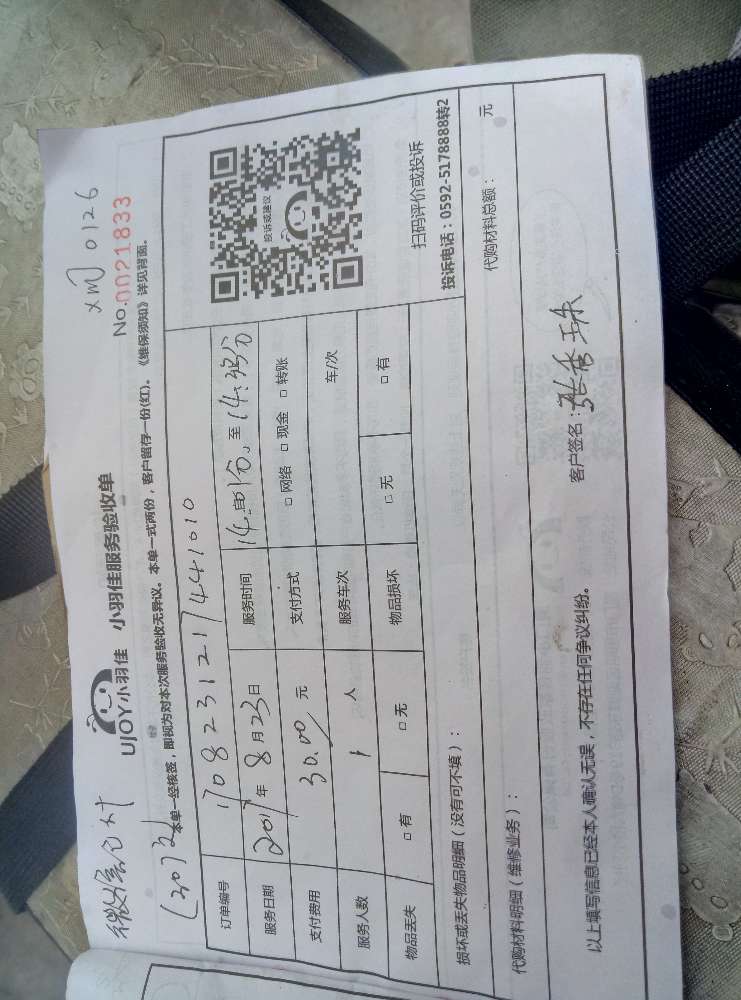 微信已付
(30元)
xm 0126
UJOY小羽佳 小羽佳服务验收单
No.0021833
本单一经核签，即视为对本次服务验收无异议。本单一式两份，客户留存一份(红)。《维保须知》详见背面。
订单编号 1708231217441010
服务日期 2017年8月23日 服务时间 至
支付费用 30.00 元 支付方式 □ 网络 □ 现金 □ 转账
服务人数 1 人 服务车次 车/次
物品丢失 □ 有 □ 无 物品损坏 □ 无 □ 有
投诉或建议
扫码评价或投诉
投诉电话：0592-5178888转2
损坏或丢失物品明细（没有可不填）：
代购材料明细（维修业务）： 代购材料总额： 元
以上填写信息已经本人确认无误，不存在任何争议纠纷。 客户签名：张香珠